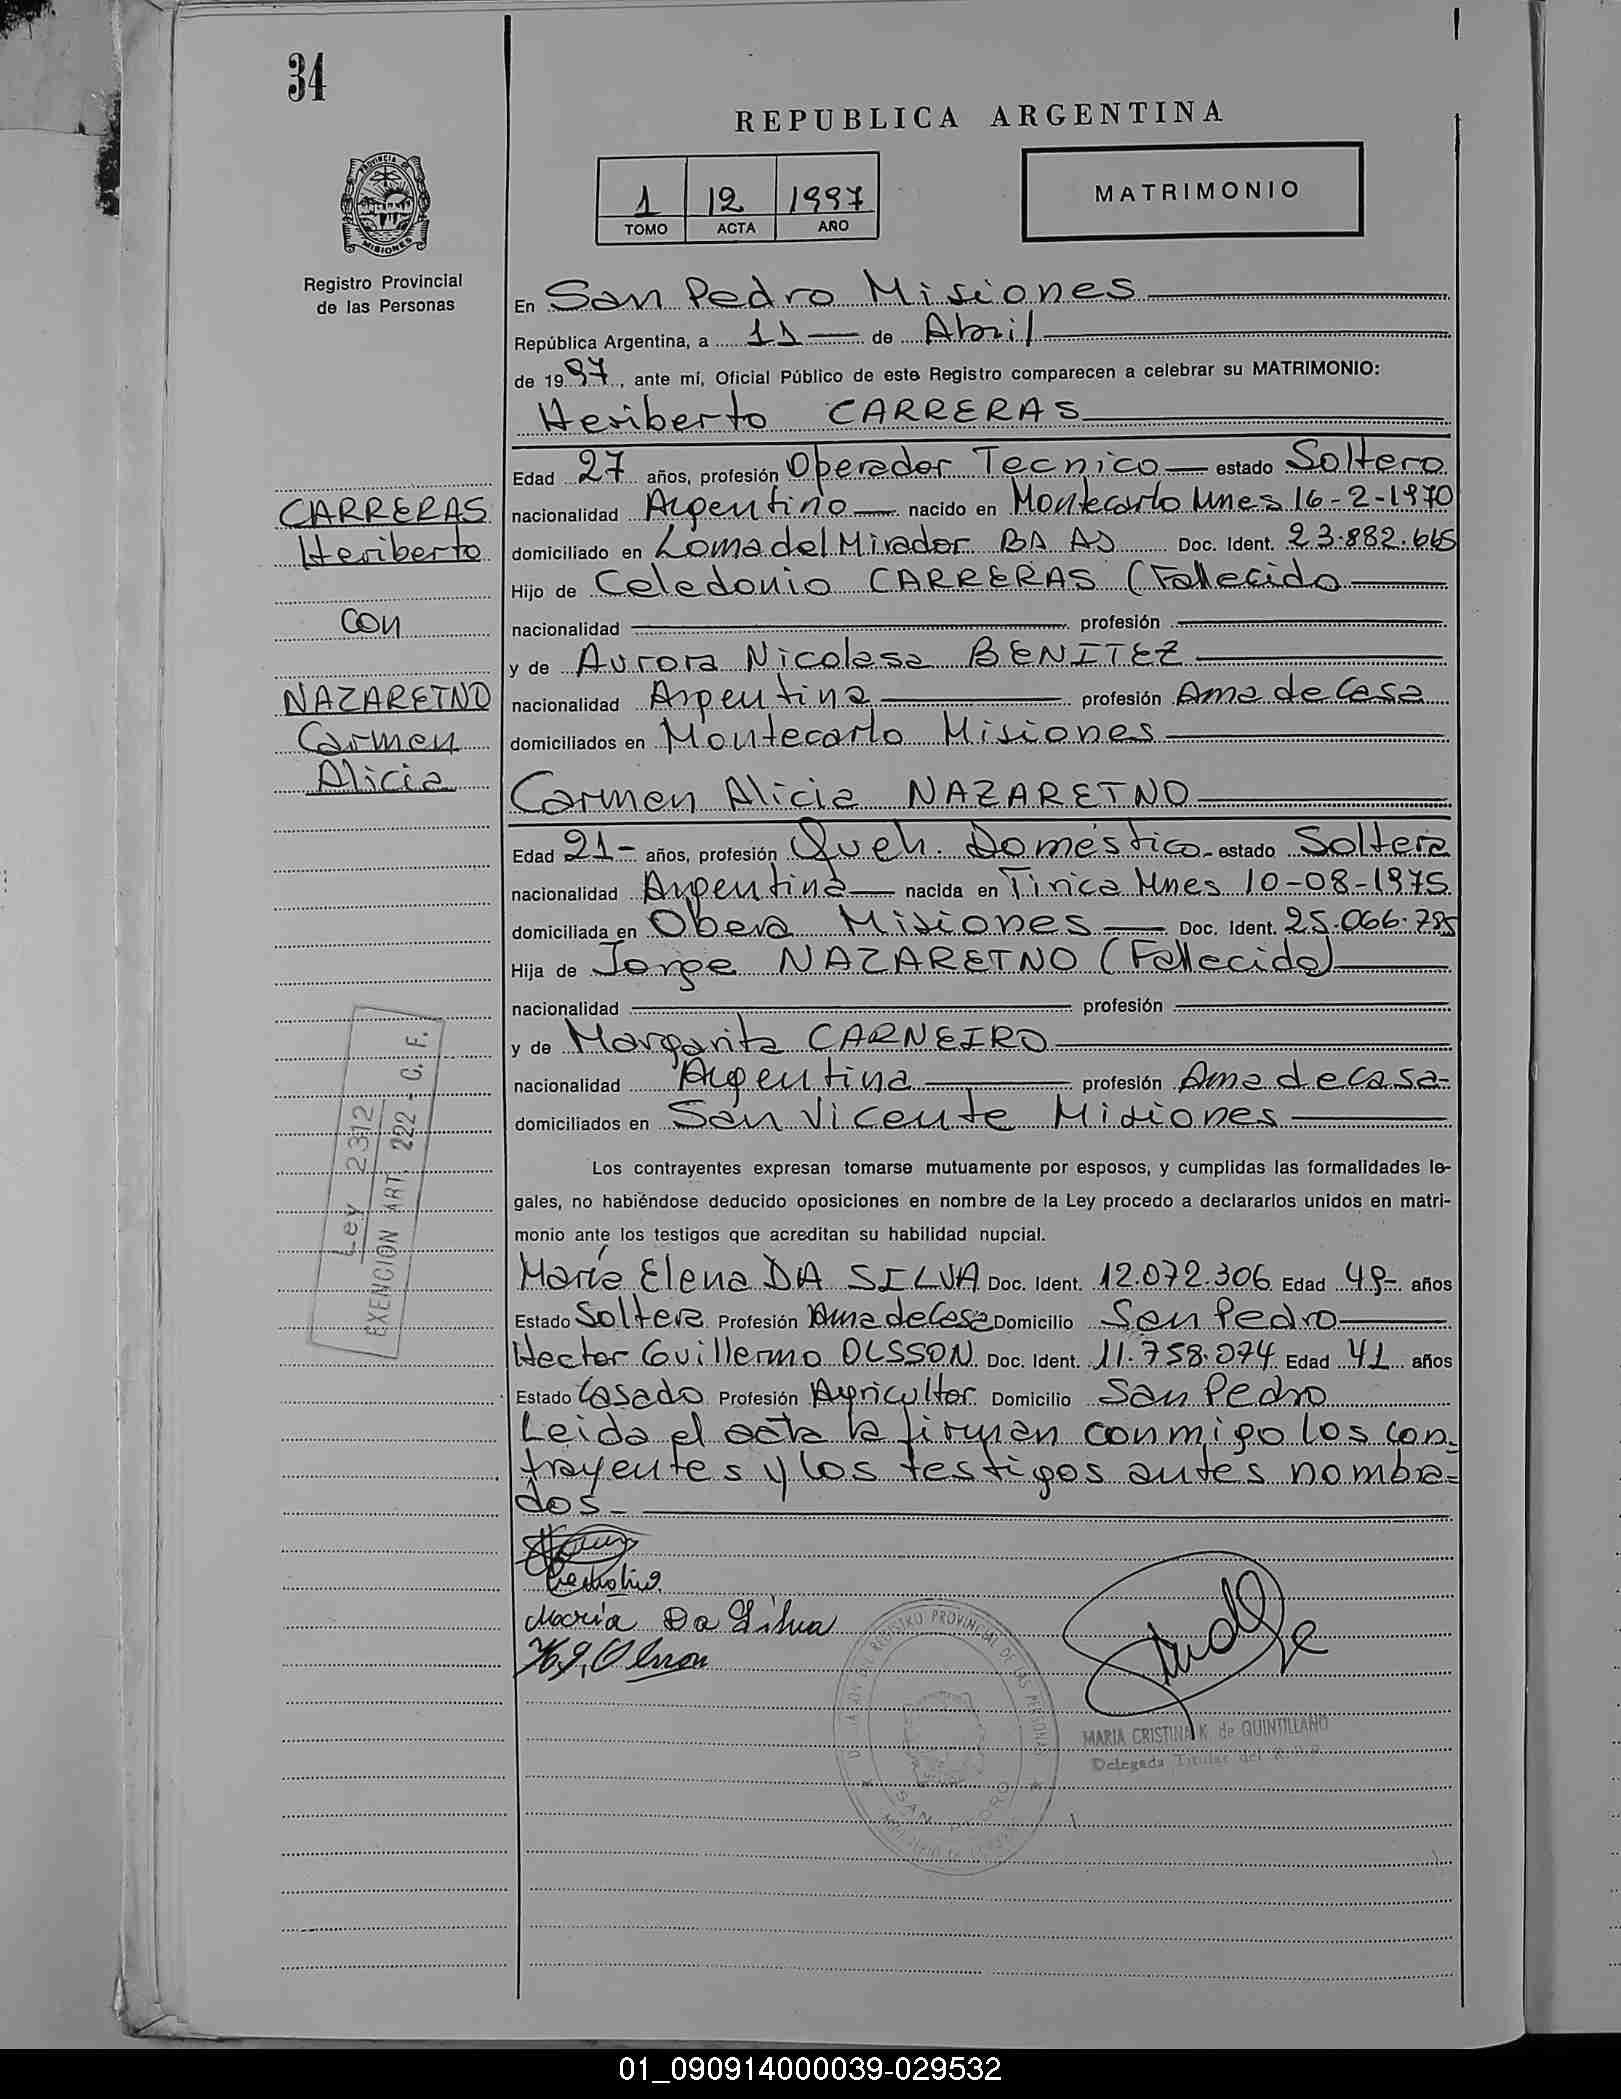 34
REPUBLICA ARGENTINA
PROVINCIA DE
MISIONES
1 12 1997
TOMO ACTA AÑO
MATRIMONIO
Registro Provincial
de las Personas
En San Pedro Misiones
República Argentina, a 11 de Abril
de 1997, ante mí, Oficial Público de este Registro comparecen a celebrar su MATRIMONIO:
Heriberto CARRERAS
Edad 27 años, profesión Operador Tecnico estado Soltero
CARRERAS
nacionalidad Argentino nacido en Montecarlo Mnes 16-2-1970
Heriberto
domiciliado en Loma del Mirador BS AS Doc. Ident. 23.882.665
Hijo de Celedonio CARRERAS (Fallecido
con
nacionalidad profesión
y de Aurora Nicolasa BENITEZ
NAZARETNO
nacionalidad Argentina profesión Ama de Casa
Carmen
domiciliados en Montecarlo Misiones
Alicia
Carmen Alicia NAZARETNO
Edad 21- años, profesión Queh. Doméstico- estado Soltera
nacionalidad Argentina nacida en Tirica Mnes 10-08-1975
domiciliada en Obera Misiones Doc. Ident. 25.066.785
Hija de Jorge NAZARETNO (Fallecido)
nacionalidad profesión
y de Margarita CARNEIRO
nacionalidad Argentina profesión Ama de casa-
domiciliados en San Vicente Misiones
Ley 2312
EXENCION ART. 222 - C. F.
Los contrayentes expresan tomarse mutuamente por esposos, y cumplidas las formalidades le-
gales, no habiéndose deducido oposiciones en nombre de la Ley procedo a declararlos unidos en matri-
monio ante los testigos que acreditan su habilidad nupcial.
María Elena DA SILVA Doc. Ident. 12.072.306 Edad 49- años
Estado Soltera Profesión Ama de Casa Domicilio San Pedro
Hector Guillermo OLSSON Doc. Ident. 11.758.074 Edad 41 años
Estado Casado Profesión Agricultor Domicilio San Pedro
Leida el acta la firman conmigo los con-
trayentes y los testigos antes nombra=
dos-
María Da Silva
H.G. Olsson
REGISTRO PROVINCIAL DE LAS PERSONAS
SAN PEDRO
MARIA CRISTINA K. de QUINTILLANO
Delegada Titular del R.P.P.
01_090914000039-029532